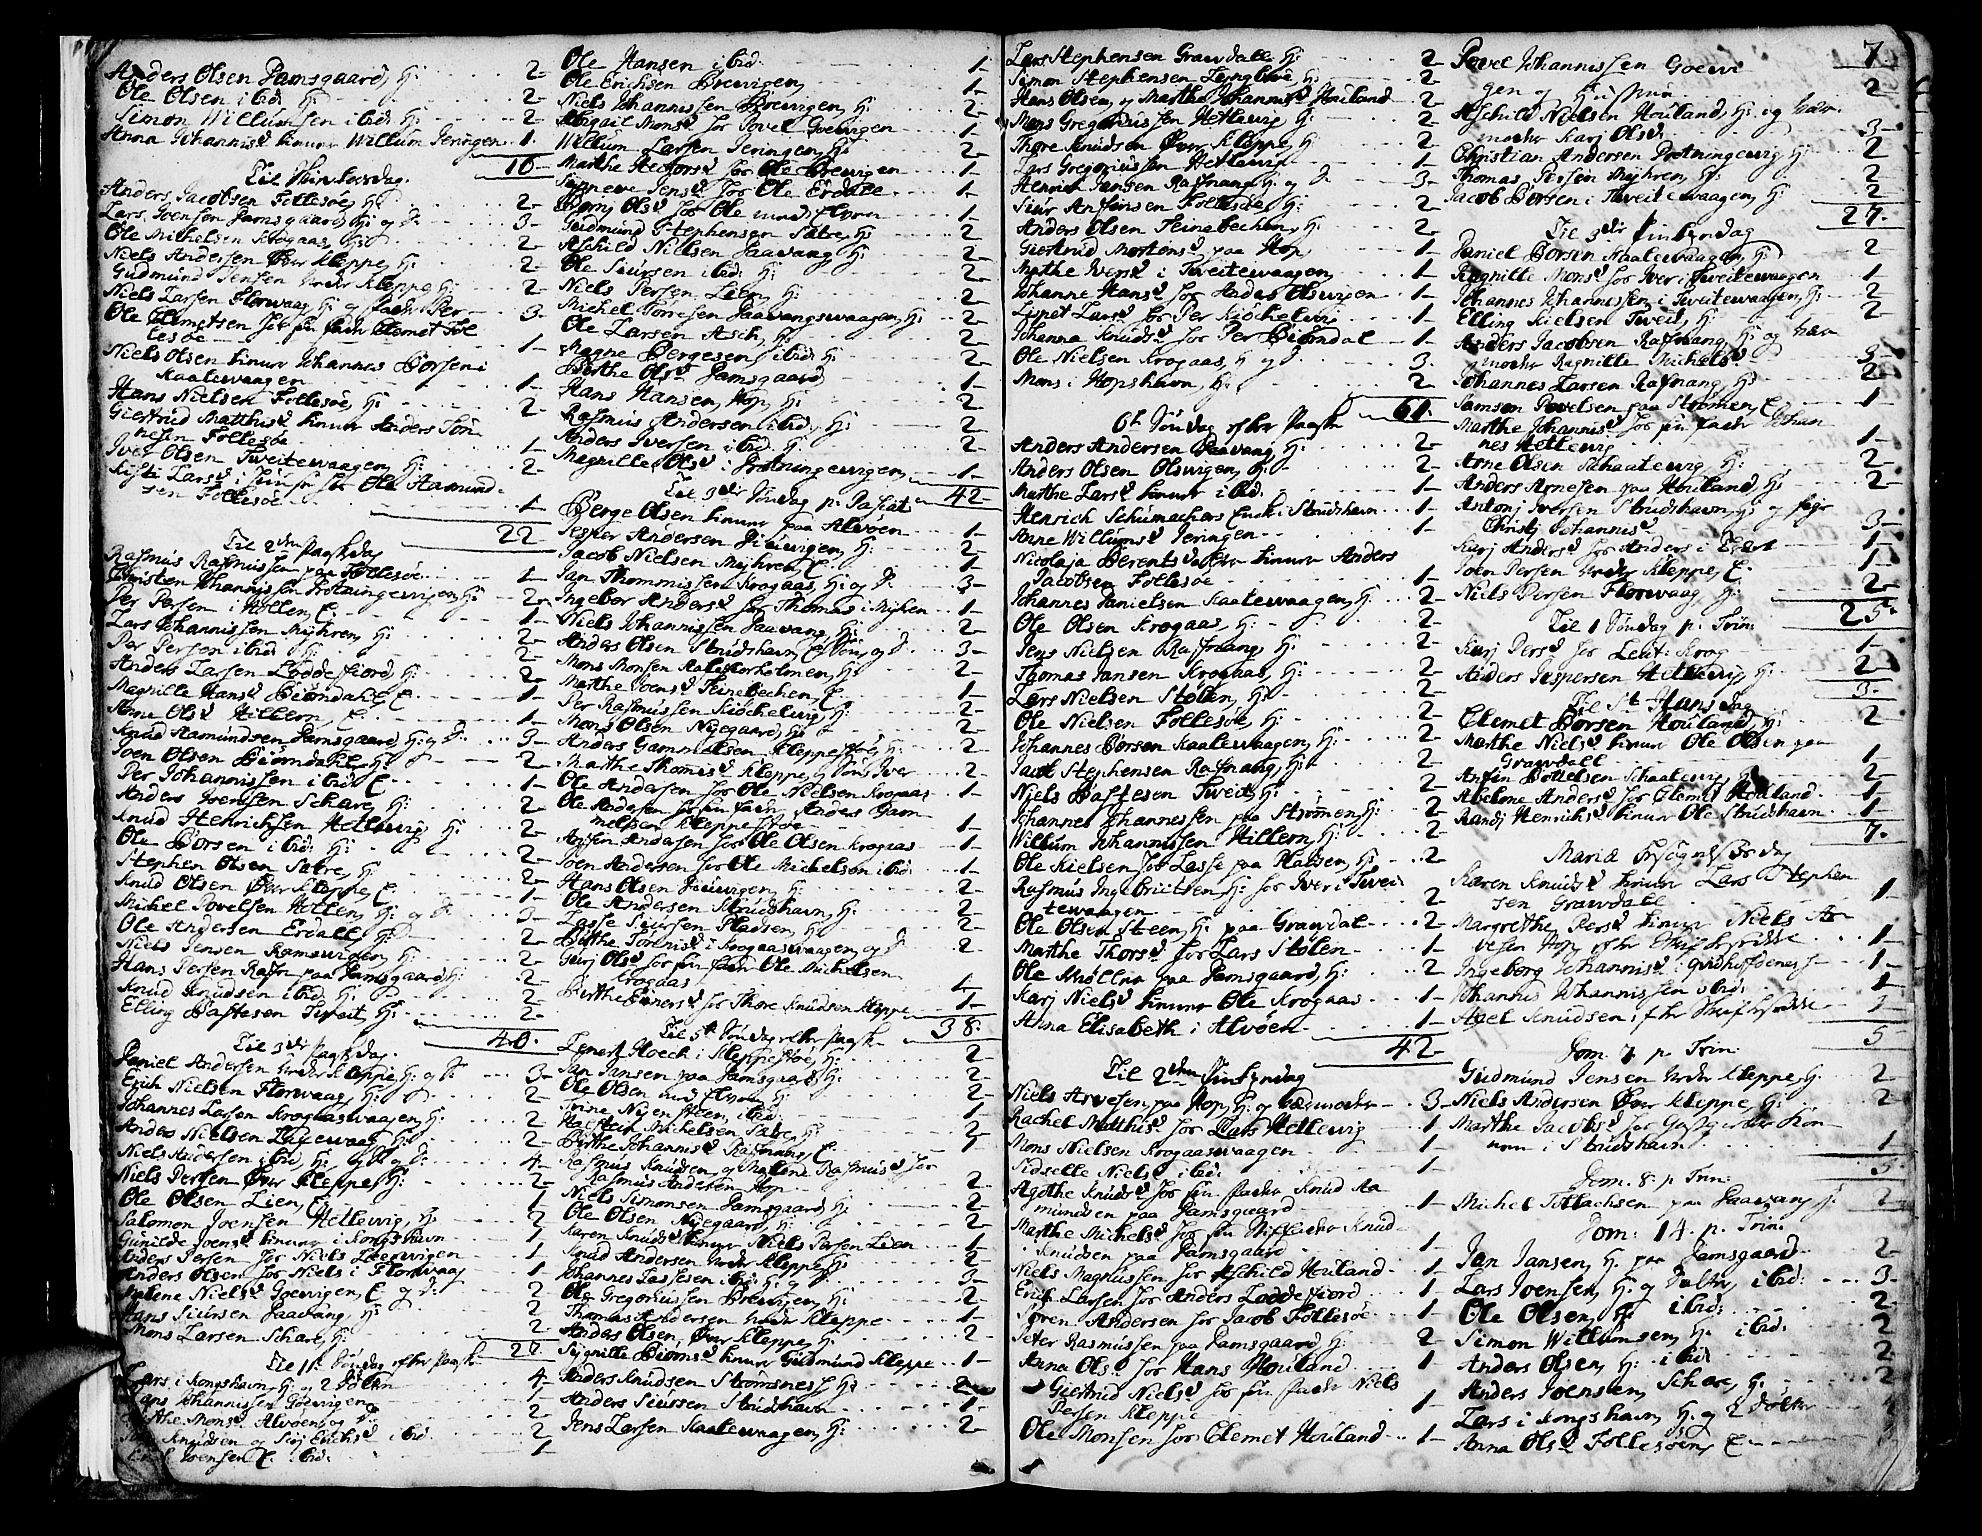 Anders Olsen Damsgaard, H: 2
Ole Olsen ibid: H: 2
Simon Willumsen ibid: H: 2
Anna Johannisd Willum Jeringen 1
10
Til Skiertorsdag
Anders Jacobsen Follesøe, H: 2
Lars Joensen Damsgaard, H: og D: 3
Ole Michelsen Krogaas, H: 2
Niels Andersen Øvre Kleppe, H: 2
Gudmund Jensen Under Kleppe, H: 2
Niels Larsen Florvaag H: og 3
Ole Clemetsen for sin fader Clemet Fol
lesøe 1
Niels Olsen Johannes Børsen i
Kaatevaagen 1
Hans Nielsen Follesøe, H: 2
Giertrud Matthiisd Anders
Follesøe 1
Iver Olsen Tveitevaagen, H: 2
Larsd for Ole Aamund
sen Follesøe 1
22
Til 2den Paaskedag
Rasmus Rasmussen paa Follesøe 1
Christen Johannissen Drotningevigen, H: 2
Per Persen i Hollen, E. 1
Lars Johannissen Myhren, H: 2
Per Persen ibid H: 2
Anders Larsen Loddefiord, H: 2
Magnille Hansd Biørndal, E. 1
Anne Olsd Hillern, E. 1
Knud Aamundsen Damsgaard, H: og D. 3
Joen Olsen Biørndahl, H: 2
Per Johannissen ibid E. 1
Anders Joensen Schare, H: 2
Knud Henrichsen Hetlevig, H: 2
Ole Børsen ibid: H: 2
Stephen Olsen Sætre, H: 2
Knud Olsen Øvre Kleppe, E. 1
Michel Povelsen Hetlen, H: og D. 3
Ole Andersen Erdall, H: 2
Niels Jensen Ramsvigen, H: 2
Hans Persen paa Damsgaard, H: 2
Knud Knudsen ibid. H: 2
Elling Bastesen Tveit, H: 2
40.
Til 3die Paaskedag.
Daniel Andersen Under Kleppe, H: og D. 3
Erich Nielsen Florvaag, H: 2
Johannes Larsen Krogaasvaagen, H: 2
Anders Nielsen H: 2
Niels Andersen ibid, H: 4
Niels Persen Øvre Kleppe, H: 2
Ole Olsen Lien, E. 1
Salomon Joensen Hetlevig, H: 2
Gunilde Joensd Kongshavn 1
Anders Persen for Niels Leervigen 1
Anders Olsen for Niels i Florvaag 1
Nielsd Goevigen, E og D. 2
Hans Siursen Haavang, H: 2
Mons Larsen Schare, H: 2
27.
Til 1ste Søndag efter Paaske
Lars i Kongshavn, H: og 2 Døttre 4
Hans Johannissen Goevigen 1
Monsd Alvøen, og D 2
Knudsen og Erichsd ibid 2
Joensen E. ibid: 1
Ole Hansen ibid. 1
Ole Erichsen Brevigen, 1
Niels Johannissen Brevigen, H: 2
Abigail Monsd for Povel Goevigen 1
Willum Larsen Jeringen, H: 2
Marthe Hectorsd for Ole Brevigen 1
Synneve Jensd for Ole Erdalle 1
Olsd for Ole 1
Gudmund Stephensen Sætre, H: 2
Aschild Nielsen Haavang, H: 2
Ole Siursen ibid: H: 2
Niels Persen Lien, H: 2
Michel Haavangsvaagen, H: 2
Ole Larsen Asch, H: 2
Magne Børgesen, ibid: H: 2
Birthe Olsd Damsgaard 1
Hans Hansen, Hop, H: 2
Rasmus Andersen ibid, H: 2
Anders Iversen ibid. H: 2
Magnille Olsd Drotningevigen, 1
Til 3die Søndag p: Pascat 42
Børge Olsen paa Alvøen 1
Jesper Andersen H: 2
Jacob Nielsen Myhren, E. 1
Jan Thommissen Krogaas, H: og D. 3
Ingebor Andersd for Thomas i Myhren 1
Niels Johannissen Haavang, H: 2
Anders Olsen Strudshavn, og D. 3
Mons Monsen H: 2
Marthe Joensd Steinebechen, E. 1
Per Rasmussen Kiøchelvig, H: 2
Mons Olsen Nygaard, H: 2
Anders Gammelsen Kleppestøe, H: 2
Marthe Thomisd Kleppe, og Søn Iver 2
Ole Andersen for Ole Nielsen Krogaas 1
Ole Andersen for sin fader Anders Gam
melsen Kleppestøe 1
Anfin Andersen for Ole Olsen Krogaas 1
Joen Andersen for Ole Michelsen ibid. 1
Hans Olsen H: 2
Ole Andersen Strudshavn, H: 2
Lasse Siursen Pladsen, H: 2
Birthe i Krogaasvaagen, og D. 2
Olsd for sin fader Ole Michelsen
Krogaas 1
Birthe for Thore Knudsen Kleppe 1
Til 5te Søndag efter Paaske 38.
Lenert Hoech i Kleppestøe, H: 2
Jan Jansen paa Damsgaard, H: 2
Ole Olsen H: 2
Trine ibid. 1
Michelsen Sætre, H: 2
Birthe Johannisd Rafnang, E. 1
Rasmus Knudsen, og Malene Rasmusd for
Rasmus Andersen Hop 2
Niels Simonsen Damsgaard, H: 2
Ole Olsen Nygaard, H: 2
Karen Knudsd Niels Persen Lien 1
Knud Andersen Under Kleppe, H: 2
Johannes Larsen ibid: H: og D. 3
Ole Gregoriussen Brevigen, H: 2
Thomas Andersen under Kleppe 1
Anders Olsen, Øvre Kleppe, H: 2
Siønille Biørnsd Gudmund Kleppe 1
Anders Knudsen Strømsnes, H: 2
Anders Siursen Strudshavn 1
Jens Larsen Kaatevaagen, H: 2
Lars Stephensen Gravdalle H: 2
Simon Stephensen H: 2
Hans Olsen, og Marthe Johannisd Houland 2
Mons Gregoriussen Hetlevig, H: 2
Thore Knudsen Øvre Kleppe, H: 2
Lars Gregoriussen Hetlevig 1
Henrich Jansen Rafnang, H: og D. 3
Siur Anfinsen Follesøe, H: 2
Anders Olsen Steinebechen, H: 2
Giertrud Mortensd paa Hop 1
Marthe Iversd i Tveitevaagen, 1
Johanne Hansd for Anders Olsvigen 1
Larsd for Per Kiøchelvig 1
Johanna Knudsd for Per Biørndal 1
Ole Nielsen Krogaas, H: og D. 3
Mons i Hopshavn, H: 2
61.
6te Søndag efter Paaske
Anders Andersen Haavang, H: 2
Anders Olsen Olsvigen, H: 2
Marthe Larsd ibid. 1
Henrich Schumachers Enke i Strudshavn 1
Anne Willumsd Jeringen 1
Nicolaja Berents Datter Anders
Jacobsen Follesøe 1
Johannes Danielsen Kaatevaagen, H: 2
Ole Olsen Krogaas, H: 2
Jens Nielsen Rafnang, H: 2
Thomas Jansen Krogaas, H: 2
Lars Nielsen Stolen, H: 2
Ole Nielsen Follesøe, H: 2
Johannes Børsen Kaatevaagen, H: 2
Jacob Stephensen Rafnang, H: 2
Niels Bastesen Tveit, H: 2
Johannes Johannessen paa Strømmen, H: 2
Willum Johannissen Hillern, H: 2
Ole Nielsen for Lasse paa Pladsen, H: 2
Rasmus Ingebrictsen, H: for Iver i Tvei
tevaagen 2
Ole Olsen Steen, H: paa Gravdal 2
Marthe Thorsd for Lars Stolen 1
Ole Møllna paa Damsgaard, H: 2
Karj Nielsd Ole Krogaas 1
Anna Elisabeth i Alvøen 1
42
Til 2den Pintzedag
Niels Arvesen paa Hop, H: og 3
Rachel Matthiisd for Lars Hetlevig 1
Mons Nielsen Krogaasvaagen 1
Sidselle Nielsd ibid. 1
Agothe Knudsd for sin fader Knud Aa
mundsen paa Damsgaard 1
Marthe Michelsd for sin Stiffader Knud
Knudsen paa Damsgaard 1
Niels Magnussen for Aschild Houland 1
Erich Larsen for Anders Loddefiord 1
Søren Andersen for Jacob Follesøe 1
Peter Rasmussen paa Damsgaard, H: 2
Anna Olsd for Hans Houland 1
Giertrud Nielsd for sin fader Niels
Persen Kleppe 1
Ole Monsen for Clemet Houland 1
7
Povel Johannissen Goevi
gen og Hustru 2
Aschild Nielsen Houland, H: og
moder Karj Olsd 3
Christian Andersen Drotningevig, H: 2
Thomas Persen Myhren, H: 2
Jacob Børsen i Tveitevaagen, H: 2
27.
Til 3die Pintzedag
Daniel Børsen Kaatevaagen, H: 2
Ragnille Monsd for Iver i Tveitevaagen 1
Johannes Johannissen i Tveitevaagen, H: 2
Elling Nielsen Tveit, H: 2
Anders Jacobsen Rafnang, H: og
moder Ragnille Michelsd 3
Johannes Larsen Rafnang, H: 2
Samson Povelsen paa Strømmen, E. 1
Marthe Johannisd for sin fader Johan
nes Hetlevig 1
Arne Olsen Schaatevig, H: 2
Anders Arnesen paa Houland, H: 2
Antonj Iversen Strudshavn, H: og
Christj Johannisd 3
Karj Andersd for Anders i 1
Joen Persen Under Kleppe, E. 1
Niels Persen Florvaag, H: 2
25.
Til 1 Søndag p. Trin:
Karj Persd for Krog 1
Anders Jespersen Hetlevig, H: 2
3.
Til St Hans Dag
Clemet Børsen Houland, H: 2
Marthe Nielsd Ole Olsen paa
Gravdall 1
Anfin Bottelsen Schaatevig, H: 2
Abelone Andersd for Clemet Houland 1
Randj Henrichsd Ole Strudshavn 1
7.
Mariæ Besøgelses Dag
Karen Knudsd Lars Stephen
sen Gravdall 1
Margrethe Persd Niels Ar
vesen Hop efter 1
Ingeborg Johannisd i 1
Johannes Johannissen ibid: 1
Axel Knudsen efter 1
5
Dom. 7. p. Trin:
Gudmund Jensen Under Kleppe, H. 2
Niels Andersen Øvre Kleppe, H: 2
Marthe Jacobsd for
i Strudshavn 1
5.
Dom. 8. p Trin:
Michel Tollachsen paa Haavang H. 2
Dom: 14. p. Trin:
Jan Jansen, H. paa Damsgaard 2
Lars Joensen, H: og Datter, ibid: 3
Ole Olsen, H: ibid: 2
Simon Willumsen, H: ibid: 2
Anders Olsen, H: ibid 2
Anders Joensen, Schare, H: 2
Lars i Kongshavn, H: og 2 Døttre 4
Anna Olsd Follesøen, E